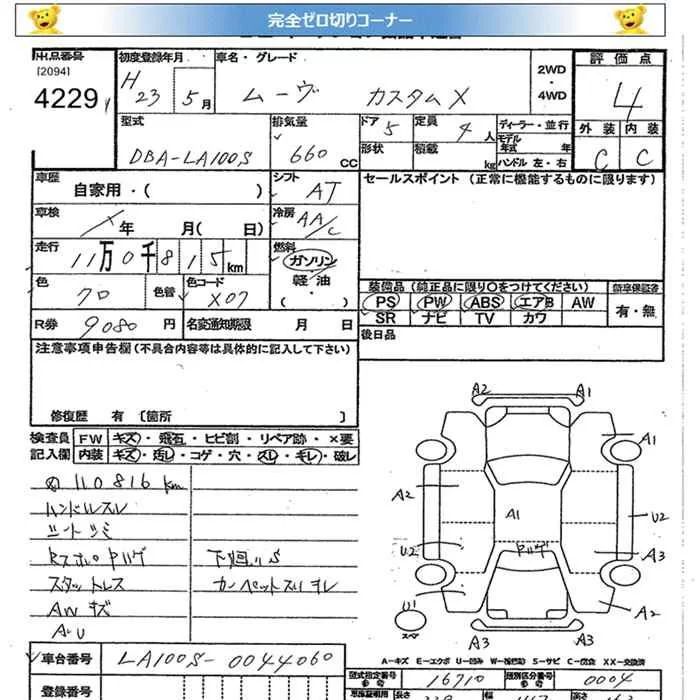 完全ゼロ切りコーナー
出品番号 [2094] 4229
初度登録年月 H 23 5月
車名・グレード ムーヴ カスタムX
2WD・4WD
評価点 4
外装 C 内装 C
型式 DBA-LA100S
排気量 660 CC
ドア 5 形状
定員 4人 積載 kg
ディーラー・並行
モデル年式 年
ハンドル 左・右
車歴 自家用・( )
シフト AT
セールスポイント (正常に機能するものに限ります)
車検 年 月( 日)
冷房 AA/C
走行 11万0千815km
燃料 ガソリン 軽油・( )
色 70 色替 色コード X07
装備品(純正品に限り○をつけてください)
PS PW ABS エアB AW
SR ナビ TV カワ
新車保証書 有・無
R券 9080円 名変通知期限 月 日
後日品
注意事項申告欄(不具合内容等は具体的に記入して下さい)
修復歴 有 〔箇所 〕
検査員 FW キズ・飛石・ヒビ割・リペア跡・×要
記入欄 内装 キズ・汚レ・コゲ・穴・スレ・キレ・破レ
110816km
ハンドルスレ
シートシミ
下廻りS
スタットレス
カーペットスリキレ
AWキズ
A・U
A2 A1
A1
A2 A1 U2
U2 A3
U1 A2
スペア
A3 A3
A-キズ E-エクボ U-凹み W-補修跡 S-サビ C-腐食 XX-交換済
車台番号 LA100S-0044060
型式指定番号 16710 類別区分番号 0004
登録番号
長さ 幅 高さ